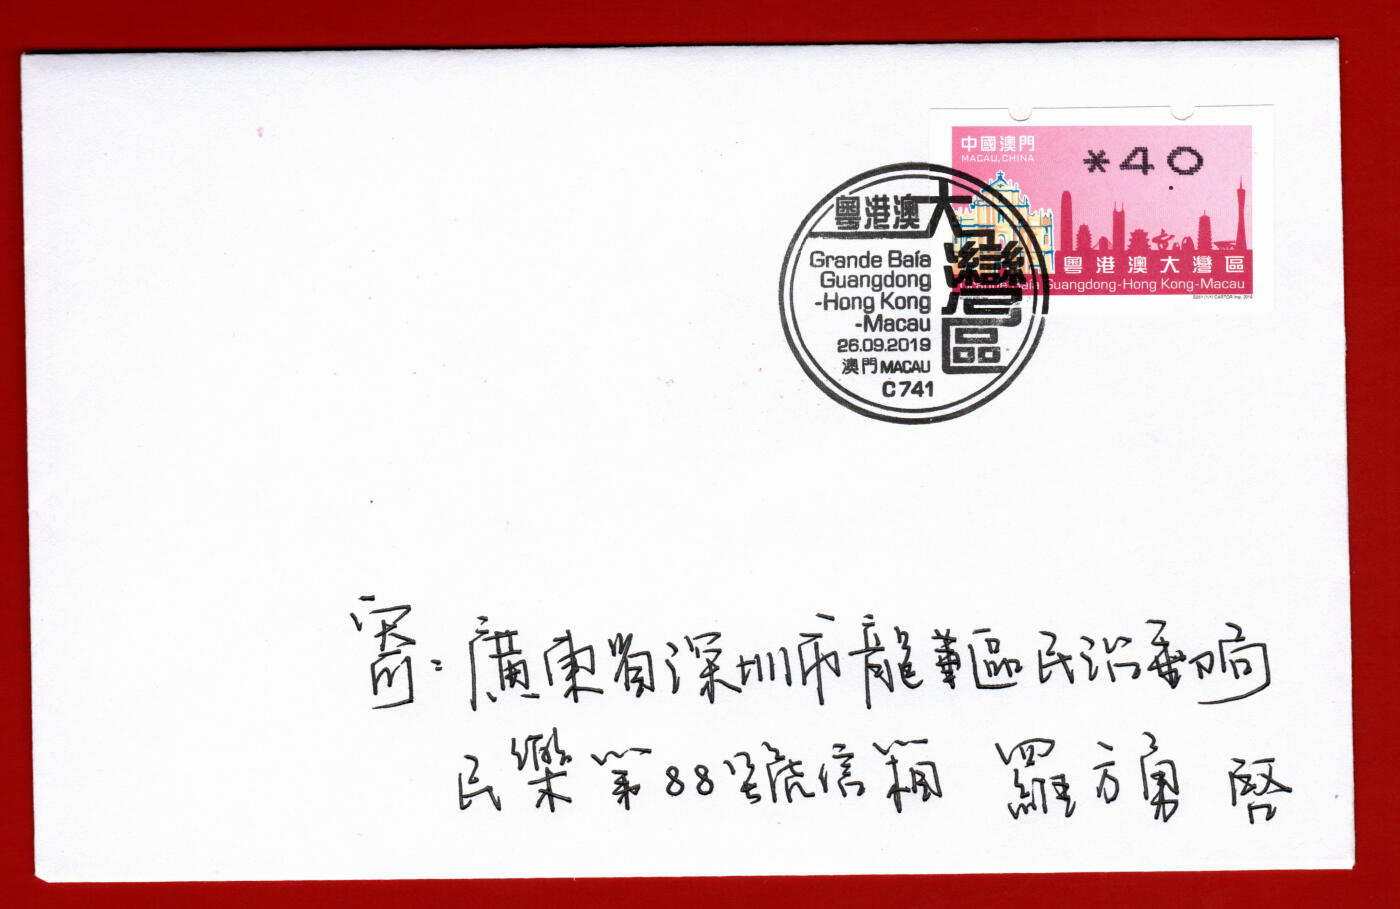 中國澳門
MACAU, CHINA
*40
粵港澳大灣區
Grande Baía Guangdong-Hong Kong-Macau
粵港澳大灣區
Grande Baía
Guangdong
-Hong Kong
-Macau
26.09.2019
澳門 MACAU
C741
寄：廣東省深圳市龍華區民治郵局
民樂第88號信箱 羅方勇 啓